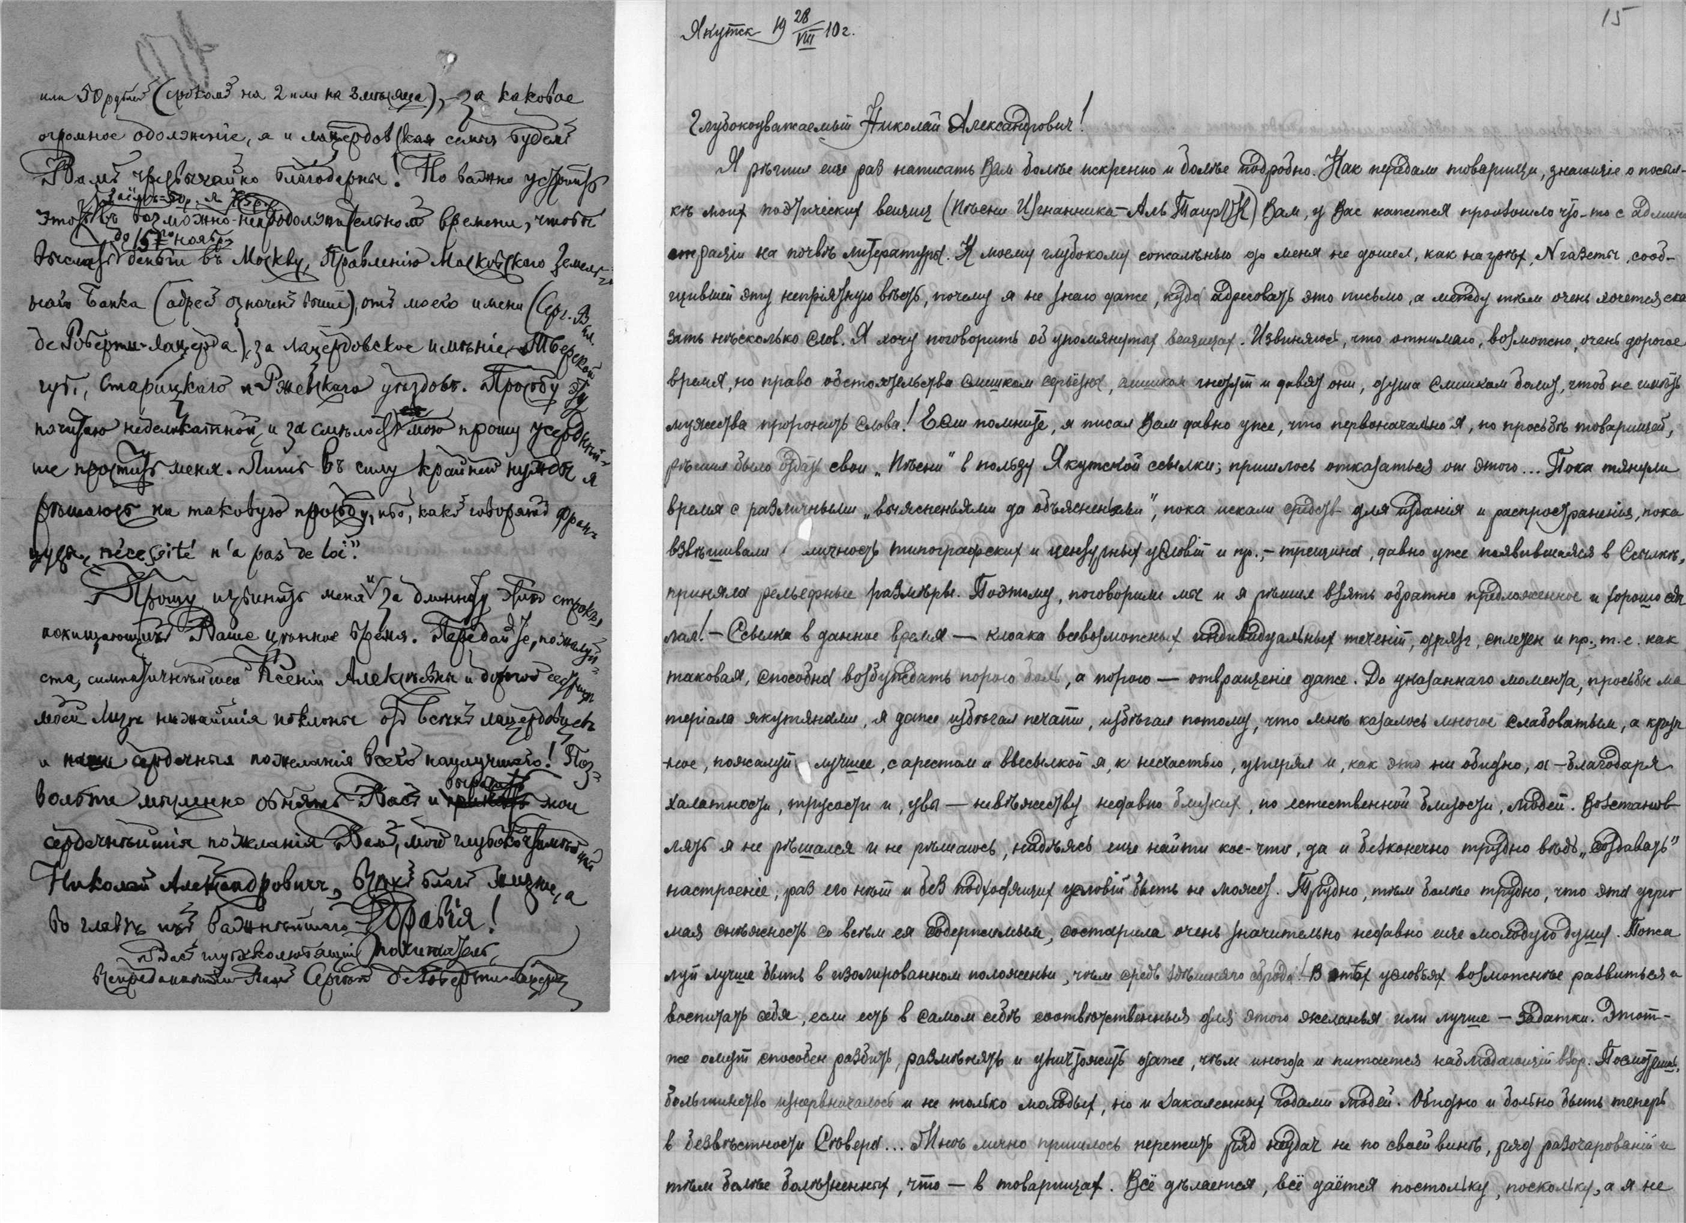 или 50 рублей (сроком на 2 или на 3 месяца), – за каковое
огромное одолженіе, я и лацердовская семья будемъ
Вамъ чрезвычайно благодарны! Но важно устроить
это въ возможно-непродолжительномъ времени, чтобы
до 15го ноября
выслать деньги въ Москву, Правленію Московскаго Земель-
наго Банка (адресъ означенъ выше), отъ моего имени (Серг. Вал.
де Роберти-Лацерда), за лацердовское имѣніе, Тверской
губ., Старицкаго и Ржевскаго уѣздовъ. Просьбу эту
почитаю неделикатной и за смѣлость мою прошу усерднѣй-
ше простить меня. Лишь въ силу крайней нужды я
рѣшаюсь на таковую просьбу, ибо, какъ говорятъ фран-
цузы, „nécessité n'a pas de loi".
Прошу извинить меня и за длинноту этихъ строкъ,
похищающихъ Ваше цѣнное время. Передайте, пожалуй-
ста, симпатичнѣйшей Ксеніи Алексѣевнѣ и дорогой сестрицѣ
моей Лизѣ нижайшія поклоны отъ всѣхъ лацердовцевъ
и наши сердечныя пожеланія всего наилучшаго! Поз-
вольте мысленно обнять Васъ и выразить мои
сердечнѣйшія пожеланія Вамъ, мой глубокочтимый
Николай Александровичъ, всѣхъ благъ жизни, а
во главѣ ихъ важнѣйшаго Здравія!
Васъ глубокочтящій почитатель,
Сергѣй де Роберти-Лацерда
15
Якутск 19 28/VIII 10 г.
Глубокоуважаемый Николай Александрович!
Я рѣшил еще раз написать Вам болѣе искренно и болѣе подробно. Как передали товарищи, знающіе о посыл-
кѣ моих поэтических вещиц (Пѣсни Изгнанника – Аль Таир) Вам, у Вас кажется произошло что-то с Админи
страціи на почвѣ литературы. К моему глубокому сожалѣнью до меня не дошел, как на грех, N газеты, сооб-
щившей эту непріятную вѣсть, почему я не знаю даже, куда адресовать это письмо, а между тѣм очень хочется ска
зать нѣсколько слов. Я хочу поговорить об упомянутых вещицах. Извиняюсь, что отнимаю, возможно, очень дорогое
время, но право обстоятельства слишком серьёзны, слишком гнетут и давят они, душа слишком болит, чтоб не имѣть
мужества проронить слова! Если помните, я писал Вам давно уже, что первоначально я, по просьбѣ товарищей,
рѣшил было отдать свои „Пѣсни" в пользу Якутской ссылки; пришлось отказаться от этого... Пока тянули
время с различными „выясненьями да объясненьями", пока искали средств для изданія и распространенія, пока
взвѣшивали личность типографских и цензурных условій и пр., – трещина, давно уже появившаяся в Ссылкѣ,
приняла рельефные размѣры. Поэтому, поговорили мы и я рѣшил взять обратно предложенное и хорошо сдѣ
лал! – Ссылка в данное время – клоака всевозможных индивидуальных теченій, дрязг, сплетен и пр., т. е. как
таковая, способна возбуждать порою боль, а порою — отвращеніе даже. До указаннаго момента, просьбы ма
теріала якутянами, я даже избѣгал печати, избѣгал потому, что мнѣ казалось многое слабоватым, а круп
ное, пожалуй лучшее, с арестом и ввысылкой я, к несчастью, утерял и, как это ни обидно, – благодаря
халатности, трусости и, увы – невѣжеству недавно близких, по естественной близости, людей. Возстанов
лять я не рѣшался и не рѣшаюсь, надѣясь еще найти кое-что, да и безконечно трудно вѣдь „создавать"
настроеніе, раз его нѣт и без подходящих условій быть не может. Трудно, тѣм болѣе трудно, что эта угрю
мая снѣжность со всѣм ея содержимым, состарила очень значительно недавно еще молодую душу. Пожа
луй лучше быть в изолированном положеньи, чѣм средь здѣшняго сброда! В этих условьях возможнѣе развиться и
воспитать себя, если есть в самом себѣ соотвѣтственныя для этого желанья или лучше – задатки. Этот-
же омут способен разбить, размѣнять и уничтожить даже, чѣм иногда и питается наблюдающій взор. Посмотришь,
большинство изнервничалось и не только молодых, но и закаленных годами людей. Обидно и больно быть теперь
в безвѣстности Сѣвера... Мнѣ лично пришлось пережить ряд неудач не по своей винѣ, ряд разочарованій и
тѣм болѣе болѣзненных, что – в товарищах. Всё дѣлается, всё даётся постольку, поскольку, а я не